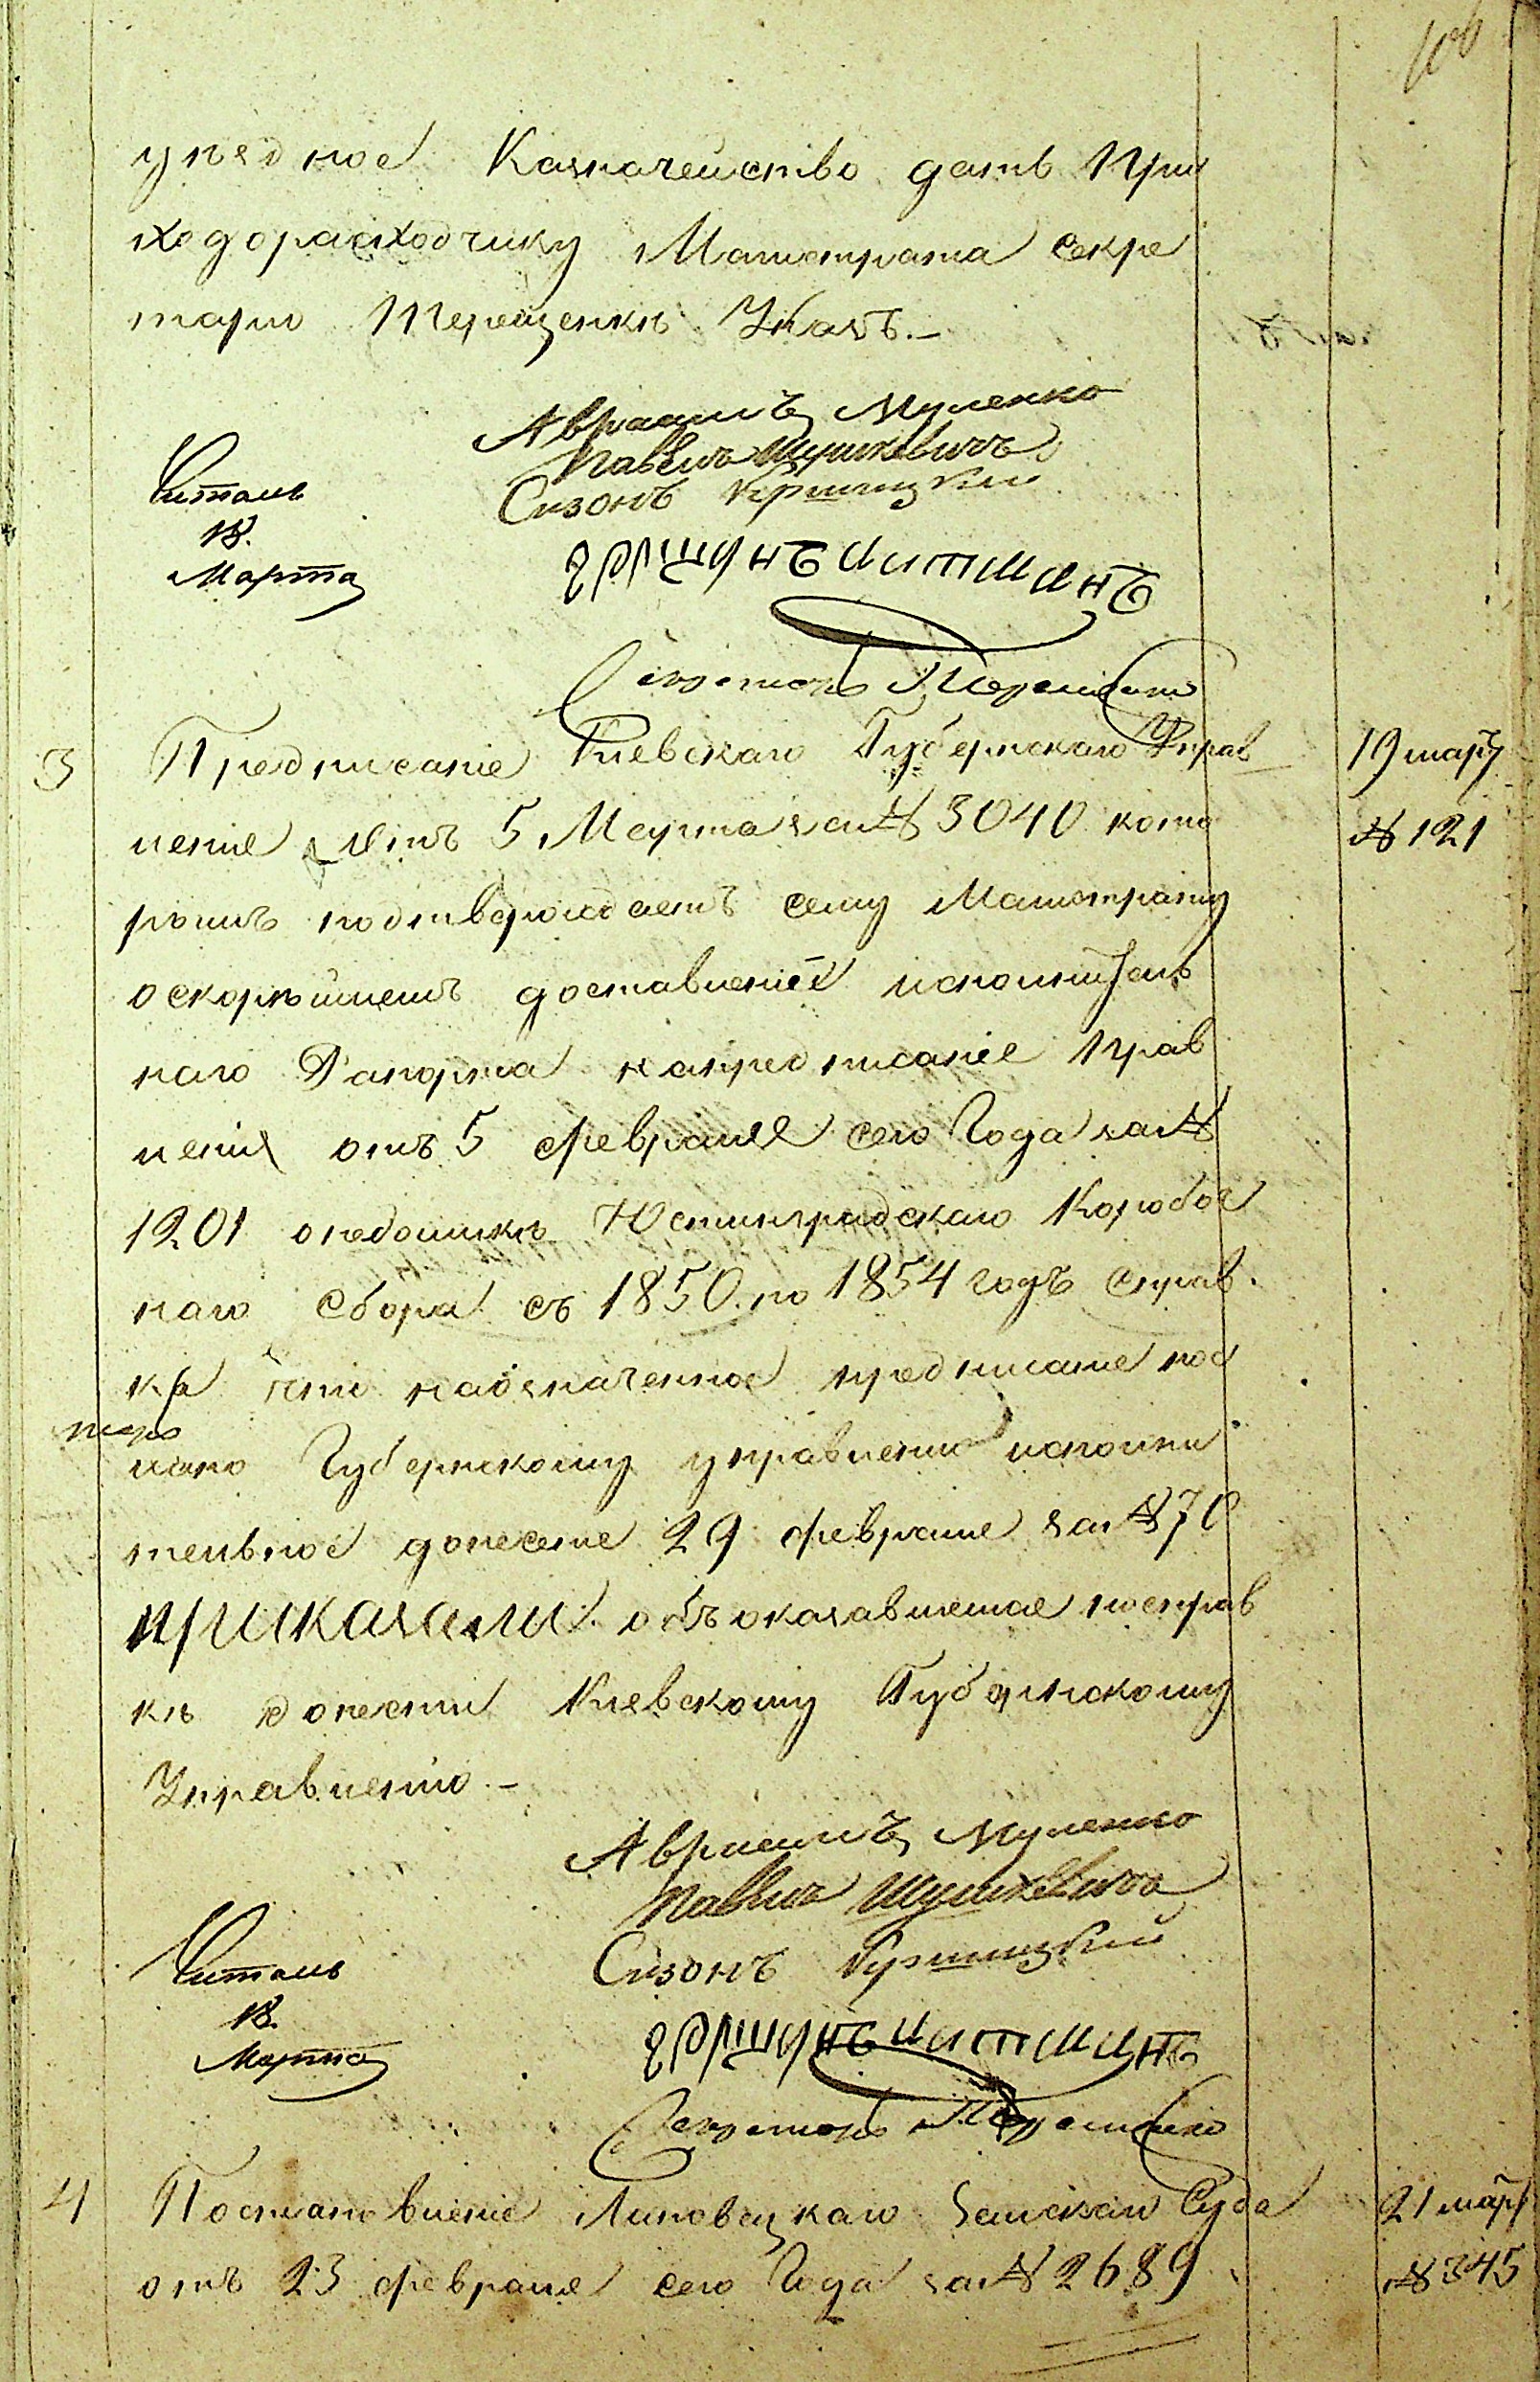 106
уездное Казначейство дать при
ходорасходчику Магистрата секре
тарю Терещенкѣ Указъ.–
Авраамъ Муленко
Павелъ Шушкевичъ
Сизонъ
Читалъ
18.
Марта
Секретарь Терещенко
3 Предписаніе Киевскаго Губернскаго Управ
19 марта
ленія отъ 5 Марта за № 3040 кото
№ 121
рымъ подтверждаетъ сему Магистрату
оскорѣйшемъ доставленіе исполнитель
наго Рапорта напредписаніе Прав
ленія отъ 5 февраля сего Года за №
1201 онедоимкѣ Юстинградскаго Коробоч
наго сбора съ 1850. по 1854 годъ Справ.
ка что надзначенное предписаніе пос
лано Губернскому управленію исполни
тельное донесеніе 29 февраля за № 70
приказали. объ оказавшемся посправ
кѣ донести Киевскому Губернскому
Управленію.–
Авраамъ Муленко
Павелъ Шушкевичъ
Сизонъ
Читалъ
18.
Марта
Секретарь Терещенко
4 Постановленіе Липовецкаго Земскаго Суда
21 марта
отъ 23 февраля сего Года за № 2689
№ 345